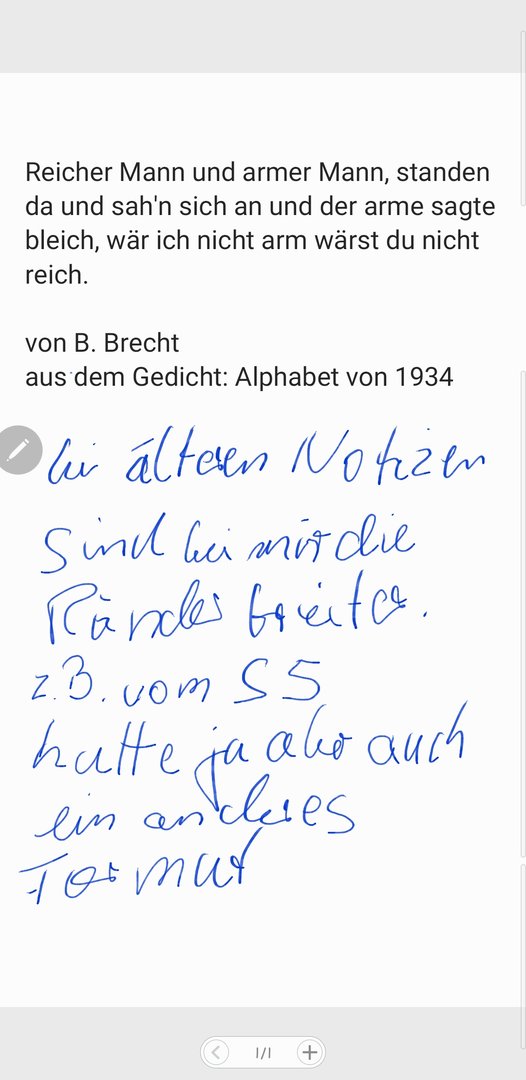 Reicher Mann und armer Mann, standen
da und sah'n sich an und der arme sagte
bleich, wär ich nicht arm wärst du nicht
reich.
von B. Brecht
aus dem Gedicht: Alphabet von 1934
bei älteren Notizen
sind bei mir die
Ränder breiter.
z.B. vom S5
hatte ja aber auch
ein anderes
Format
1/1